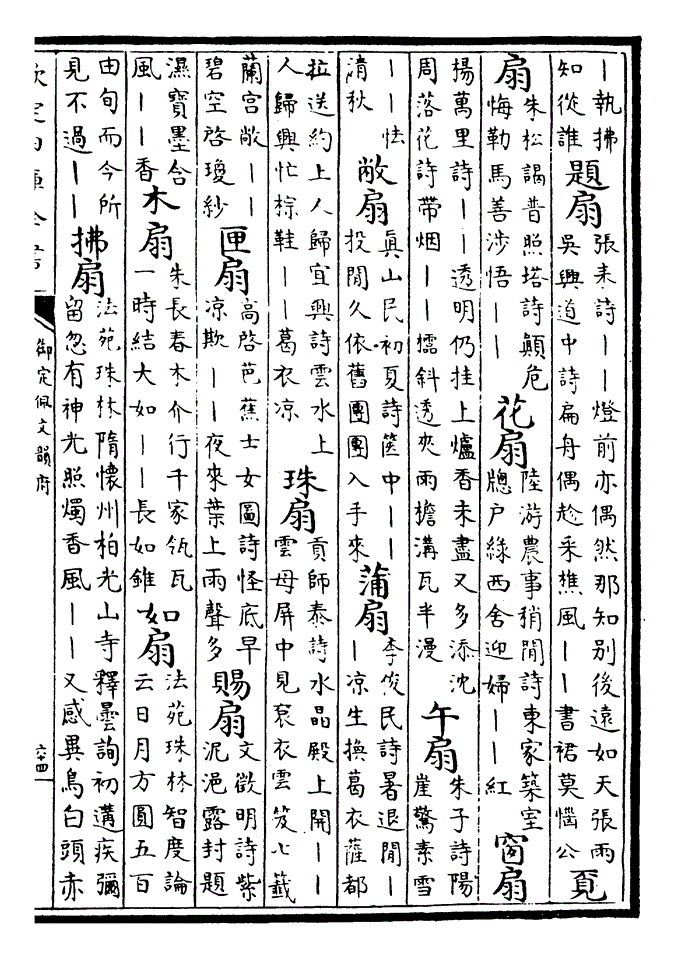 ｜執拂
知從誰
題扇
張耒詩｜｜燈前亦偶然那知別後遠如天張雨
吳興道中詩扁舟偶趁采樵風｜｜書裙莫惱公
覔
扇
朱松謁普照塔詩顛危
悔勒馬善涉悟｜｜
花扇
陸游農事稍閒詩東家築室
牕戶綠西舍迎婦｜｜紅
窗扇
揚萬里詩｜｜透明仍挂上爐香未盡又多添沈
周落花詩帶烟｜｜斜透夾雨檐溝瓦半漫
午扇
朱子詩陽
崖驚素雪
｜｜怯
清秋
敞扇
真山民初夏詩箧中｜｜
投閒久依舊團團入手來
蒲扇
李俊民詩暑退閒｜
｜凉生換葛衣薩都
拉送約上人歸宜興詩雲水上
人歸興忙棕鞋｜｜葛衣凉
珠扇
貢師泰詩水晶殿上開｜｜
雲母屏中見衮衣雲笈七籤
蘭宫敞｜｜
碧空啓瓊紗
匣扇
高啓芭蕉士女圖詩怪底早
凉欺｜｜夜來葉上雨聲多
賜扇
文徵明詩紫
泥浥露封題
濕寶墨含
風｜｜香
木扇
朱長春木介行千家瓴瓦
一時結大如｜｜長如錐
如扇
法苑珠林智度論
云日月方圓五百
由旬而今所
見不過｜｜
拂扇
法苑珠林隋懷州柏光山寺釋曇詢初遘疾彌
留忽有神光照燭香風｜｜又感異鳥白頭赤
欽定四庫全書
御定佩文韻府
六十四